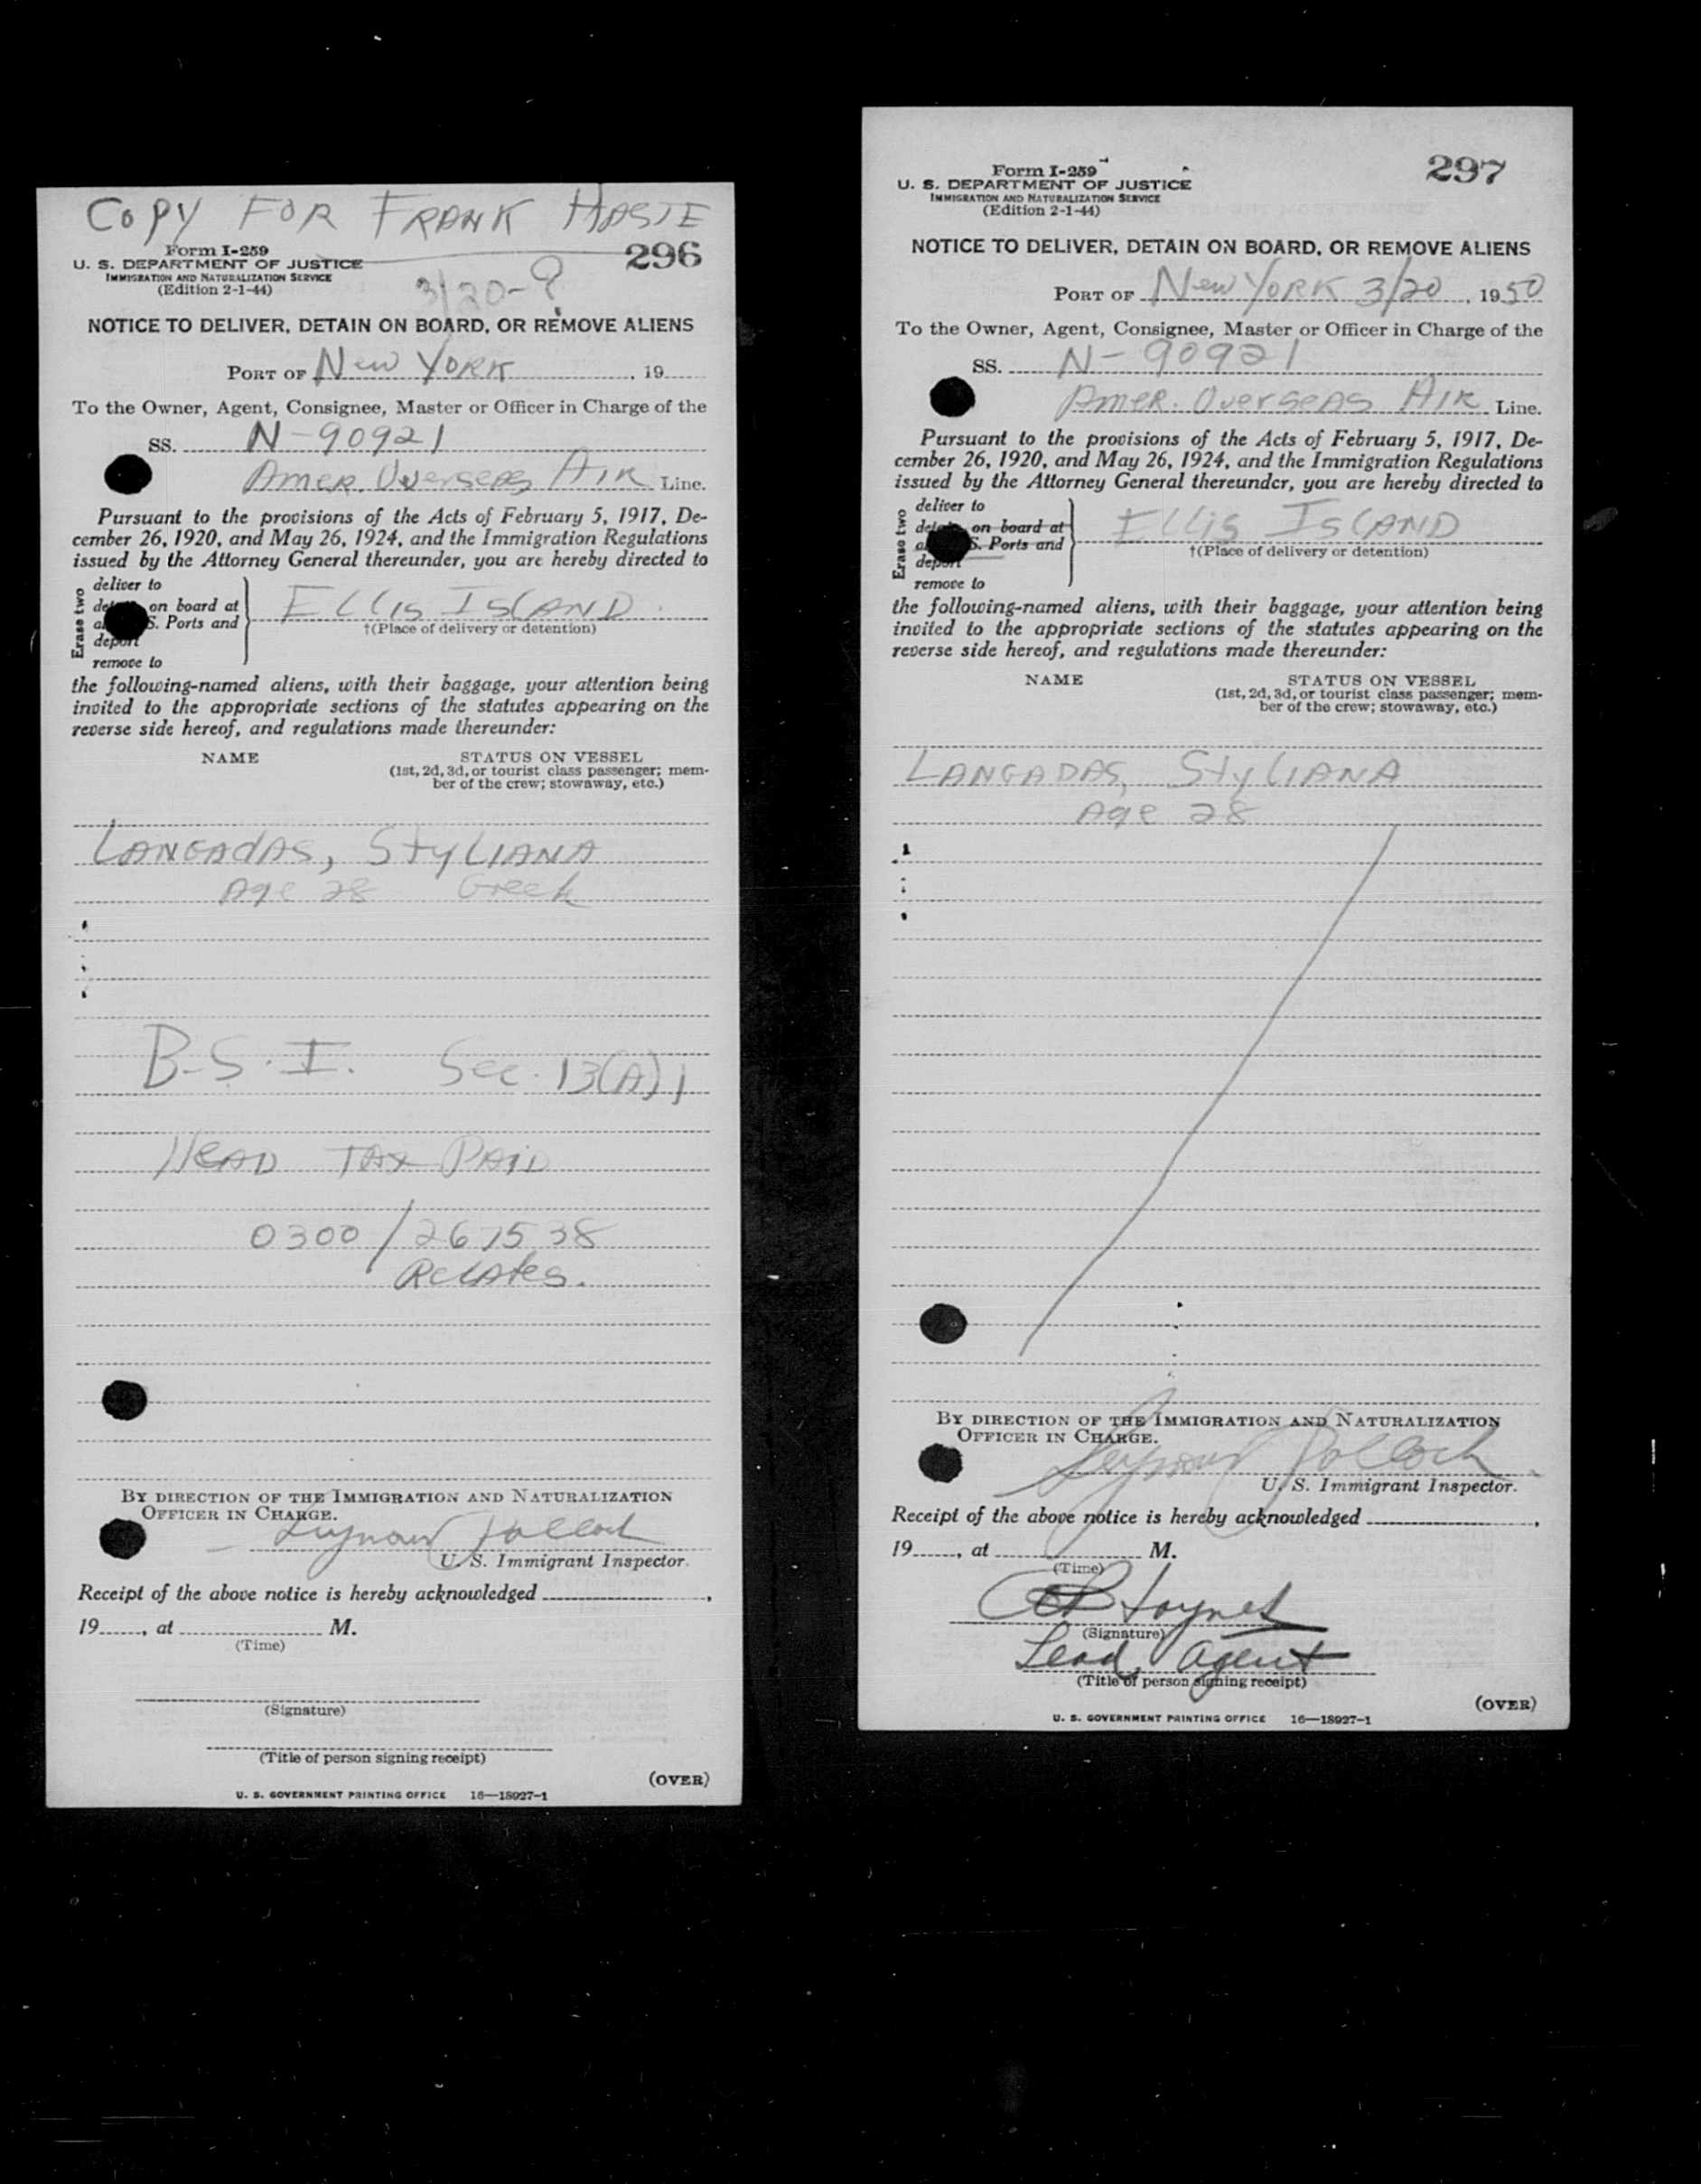 COPY FOR FRANK HASTE
296
Form I-259
U. S. DEPARTMENT OF JUSTICE
IMMIGRATION AND NATURALIZATION SERVICE
(Edition 2-1-44)
3/20-?
NOTICE TO DELIVER, DETAIN ON BOARD, OR REMOVE ALIENS
PORT OF New YORK, 19
To the Owner, Agent, Consignee, Master or Officer in Charge of the
SS. N-90921
Amer. Overseas AIR Line.
Pursuant to the provisions of the Acts of February 5, 1917, De-
cember 26, 1920, and May 26, 1924, and the Immigration Regulations
issued by the Attorney General thereunder, you are hereby directed to
Erase two
deliver to
on board at
S. Ports and
deport
remove to
ELLIS ISLAND
†(Place of delivery or detention)
the following-named aliens, with their baggage, your attention being
invited to the appropriate sections of the statutes appearing on the
reverse side hereof, and regulations made thereunder:
NAME
STATUS ON VESSEL
(1st, 2d, 3d, or tourist class passenger; mem-
ber of the crew; stowaway, etc.)
LANGADAS, STYLIANA
Age 28 Greek
B.S.I. Sec. 13(A)1
HEAD TAX PAID
0300/267538
Relates.
BY DIRECTION OF THE IMMIGRATION AND NATURALIZATION
OFFICER IN CHARGE.
Seymour Pollock
U. S. Immigrant Inspector.
Receipt of the above notice is hereby acknowledged ,
19 , at M.
(Time)
(Signature)
(Title of person signing receipt)
(OVER)
U. S. GOVERNMENT PRINTING OFFICE 16—18927-1
297
Form I-259
U. S. DEPARTMENT OF JUSTICE
IMMIGRATION AND NATURALIZATION SERVICE
(Edition 2-1-44)
NOTICE TO DELIVER, DETAIN ON BOARD, OR REMOVE ALIENS
PORT OF New YORK 3/20, 1950
To the Owner, Agent, Consignee, Master or Officer in Charge of the
SS. N-90921
Amer. Overseas AIR Line.
Pursuant to the provisions of the Acts of February 5, 1917, De-
cember 26, 1920, and May 26, 1924, and the Immigration Regulations
issued by the Attorney General thereunder, you are hereby directed to
Erase two
deliver to
on board at
S. Ports and
deport
remove to
ELLIS ISLAND
†(Place of delivery or detention)
the following-named aliens, with their baggage, your attention being
invited to the appropriate sections of the statutes appearing on the
reverse side hereof, and regulations made thereunder:
NAME
STATUS ON VESSEL
(1st, 2d, 3d, or tourist class passenger; mem-
ber of the crew; stowaway, etc.)
LANGADAS, STYLIANA
Age 28
BY DIRECTION OF THE IMMIGRATION AND NATURALIZATION
OFFICER IN CHARGE.
Seymour Pollock
U. S. Immigrant Inspector.
Receipt of the above notice is hereby acknowledged ,
19 , at M.
(Time)
(Signature)
Lead Agent
(Title of person signing receipt)
(OVER)
U. S. GOVERNMENT PRINTING OFFICE 16—18927-1